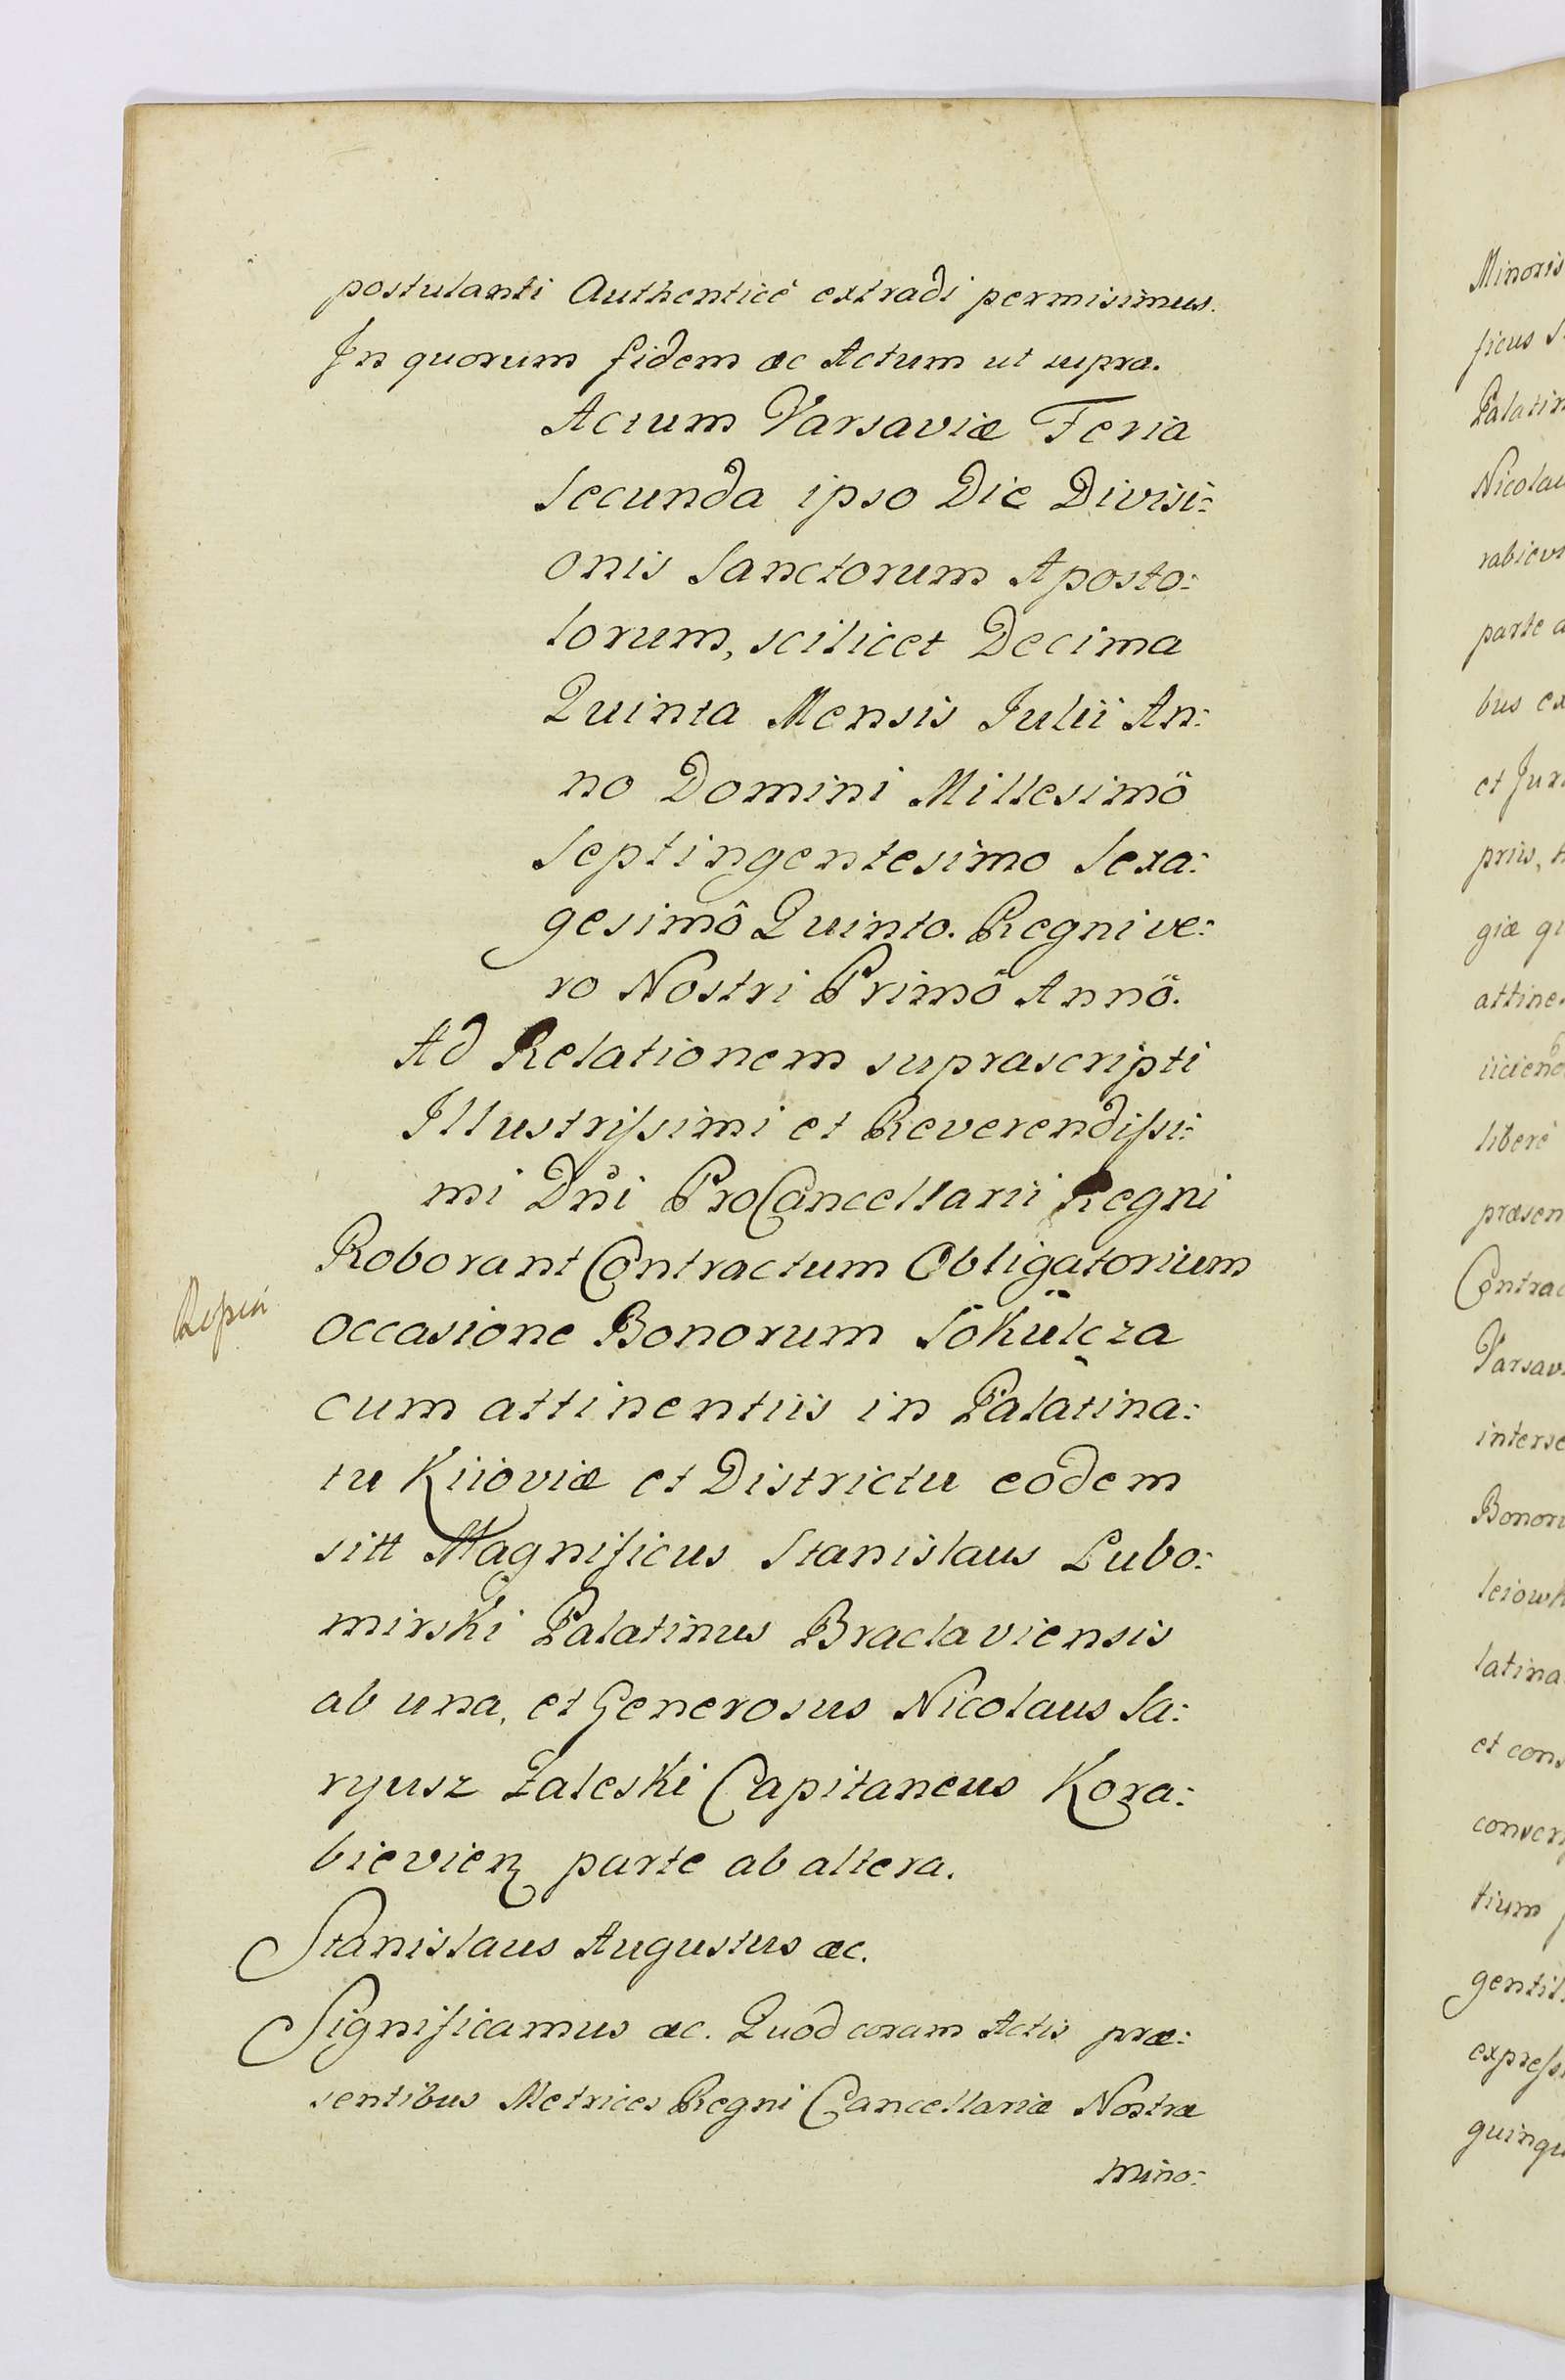 postulanti Authenticè extradi permisimus.
In quorum fidem &c Actum ut supra.
Actum Varsaviæ Feria
Secunda ipso Die Divisi:
onis Sanctorum Aposto:
lorum, scilicet Decima
Quinta Mensis Julii An:
no Domini Millesimô
Septingentesimo Sexa:
gesimô Quinto. Regni ve:
ro Nostri Primô Annô.
Ad Relationem suprascripti
Illustrissimi et Reverendissi:
mi Dni ProCancellarii Regni
Roborant Contractum Obligatorium
occasione Bonorum Sokulcza
cum attinentiis in Palatina:
tu Kiioviæ et Districtu eodem
sitt Magnificus Stanislaus Lubo:
mirski Palatinus Braclaviensis
ab una, et Generosus Nicolaus Sa:
ryusz Zaleski Capitaneus Kora:
bievien parte ab altera.
Stanislaus Augustus &c.
Significamus &c. Quod coram Actis præ:
sentibus Metrices Regni Cancellariæ Nostræ
Mino:
Minoris
ficus S
Palatin
Nicolau
rabievi
parte a
bus ex
et Juri
priis,
giæ qu
attine
iiciend
liberè
præsen
Contrac
Varsav
interse
Bonoru
leiowk
latina
et cons
conver
tium
gentil
express
quinqu